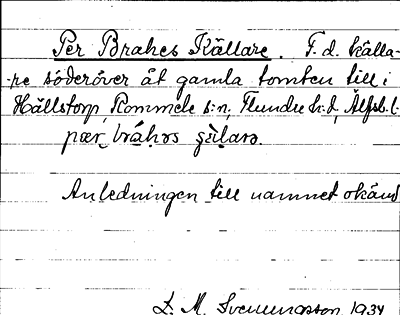 Per Brahes Källare. F.d. källa-
re söderöver åt gamla tomten till i
Hällstorp, Rommele s:n, Flundre h:d, Älfsb. l.
pær, bráhəs
Anledningen till namnet okänd
L. M. Svenungsson 1934